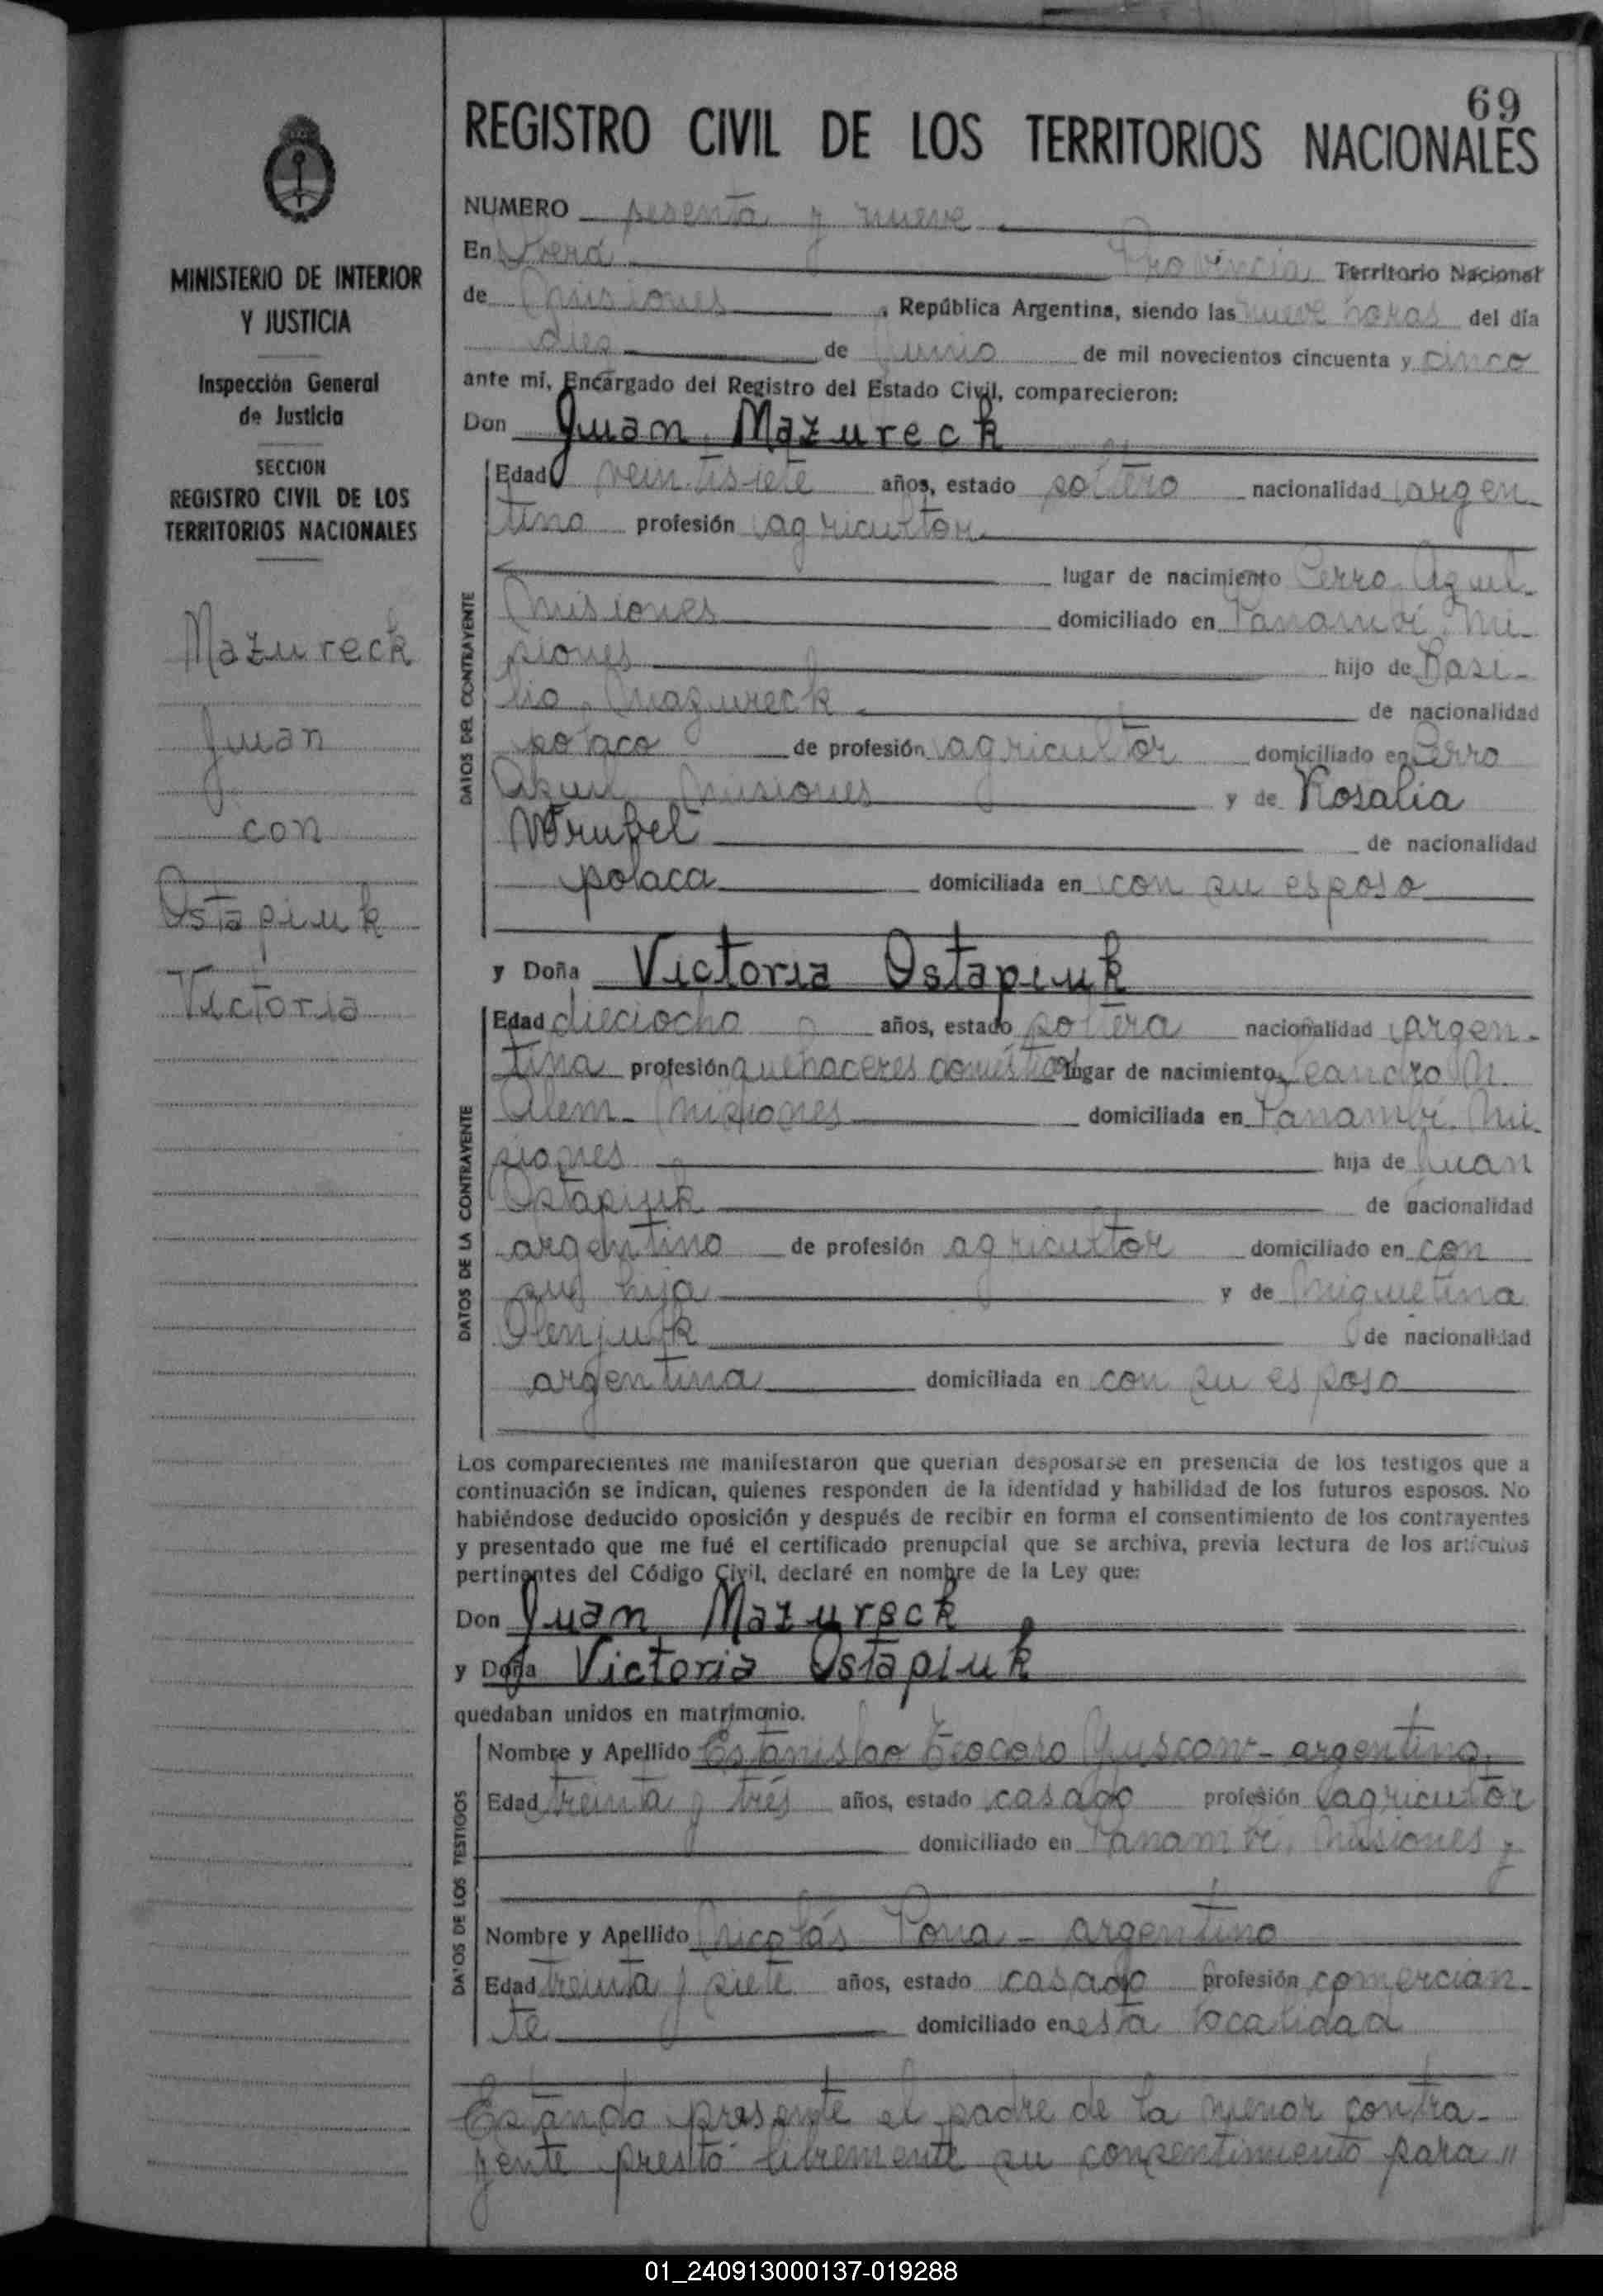 69
REGISTRO CIVIL DE LOS TERRITORIOS NACIONALES
MINISTERIO DE INTERIOR
Y JUSTICIA
Inspección General
de Justicia
SECCION
REGISTRO CIVIL DE LOS
TERRITORIOS NACIONALES
Mazureck
Juan
con
Ostapiuk
Victoria
NUMERO sesenta y nueve
En Oberá Provincia Territorio Nacional
de Misiones, República Argentina, siendo las nueve horas del día
diez de Junio de mil novecientos cincuenta y cinco
ante mí, Encargado del Registro del Estado Civil, comparecieron:
Don Juan Mazureck
DATOS DEL CONTRAYENTE
Edad veintisiete años, estado soltero nacionalidad argen-
tino profesión agricultor
lugar de nacimiento Cerro Azul-
Misiones domiciliado en Panambí. Mi-
siones hijo de Basi-
lio Mazureck de nacionalidad
polaco de profesión agricultor domiciliado en Cerro
Azul Misiones y de Rosalia
Wrubel de nacionalidad
polaca domiciliada en con su esposo
y Doña Victoria Ostapiuk
DATOS DE LA CONTRAYENTE
Edad dieciocho años, estado soltera nacionalidad argen-
tina profesión quehaceres domésticos lugar de nacimiento Leandro N.
Alem- Misiones domiciliada en Panambí. Mi-
siones hija de Juan
Ostapiuk de nacionalidad
argentino de profesión agricultor domiciliado en con
su hija y de Miguelina
Olenjuk de nacionalidad
argentina domiciliada en con su esposo
Los comparecientes me manifestaron que querían desposarse en presencia de los testigos que a
continuación se indican, quienes responden de la identidad y habilidad de los futuros esposos. No
habiéndose deducido oposición y después de recibir en forma el consentimiento de los contrayentes
y presentado que me fué el certificado prenupcial que se archiva, previa lectura de los artículos
pertinentes del Código Civil, declaré en nombre de la Ley que:
Don Juan Mazureck
y Doña Victoria Ostapiuk
quedaban unidos en matrimonio.
DATOS DE LOS TESTIGOS
Nombre y Apellido Estanislao Teodoro - argentino.
Edad treinta y trés años, estado casado profesión agricultor
domiciliado en Panambí. Misiones y
Nombre y Apellido Nicolás - argentino
Edad treinta y siete años, estado casado profesión comercian-
te domiciliado en esta localidad
Estando presente el padre de la menor contra-
yente prestó libremente su consentimiento para "
01_240913000137-019288